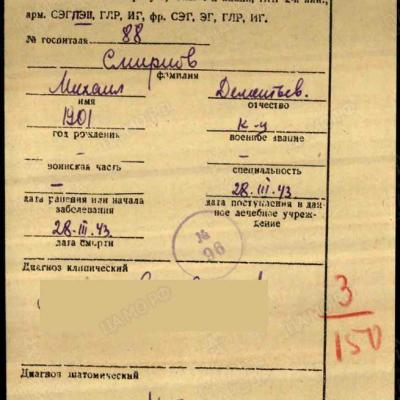 арм. СЭГ, ПЭП, ГЛР, ИГ, фр. СЭГ, ЭГ, ГЛР, ИГ.
№ госпиталя 88
Смирнов
фамилия
Михаил Дементьев.
имя отчество
1901 к-у
год рождения военное звание
– –
воинская часть специальность
– 28.III.43
дата ранения или начала заболевания
дата поступления в данное лечебное учреждение
28.III.43.
дата смерти
№ 96
Диагноз клинический
3/150
Диагноз анатомический
ЦАМО РФ